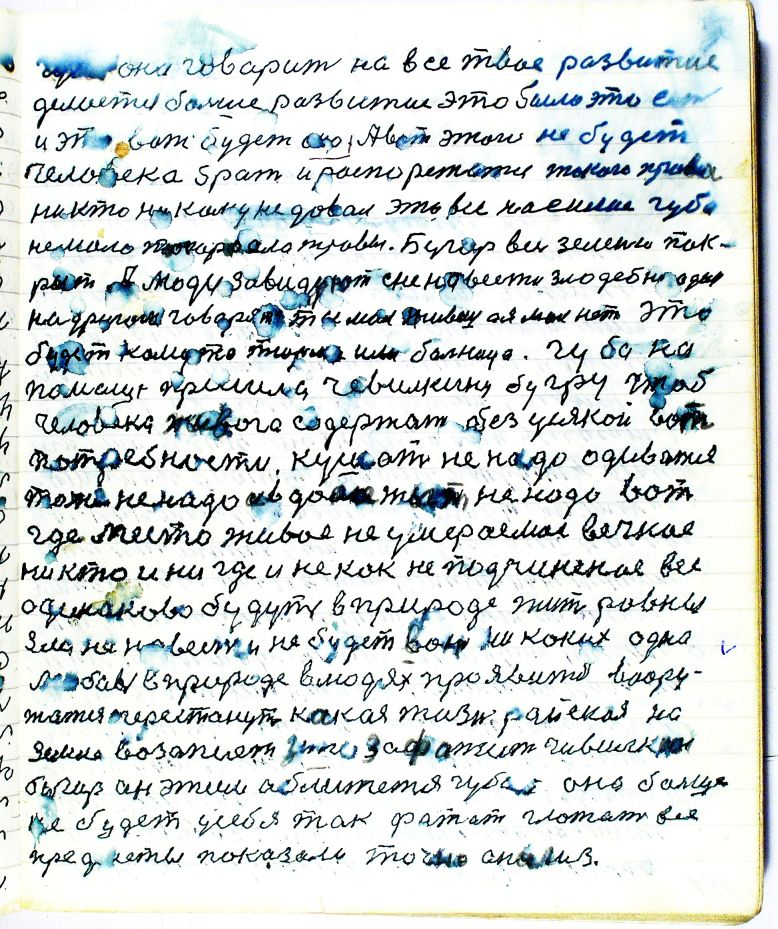 она говарит на все твое развитие
делается болие развитие это было это есть
и эт вот будет оно. А вот этаго не будет
Человека брат и распоряжатся такого права
никто никому не довал это все насилие губа
немало травы. Бугор весь зеленю пок-
рыт. людя завидуют ненависти злодебни один
на другога говорят ты мол живеш а я мол нет это
будет кому то тюрма или болница. губа на
помащ пришла чевилкину бугру чтоб
человека живога содержат без усякой вот
потребности. кушат не надо одиватся
тоже не надо в доме жит не надо вот
где место живое не умераемае вечное
никто и ни где и не как не подчиненае все
одинаково будут в природе жит ровны
зла не навести и не будет воин ни коких одна
любов в природе в людях проявится воору-
жатся перестанут какая жизн райская на
земле возапиет чивилкин
бугар он этим аближется губа она болще
не будет у себя так фатат глотат все
предметы показали точно анализ.